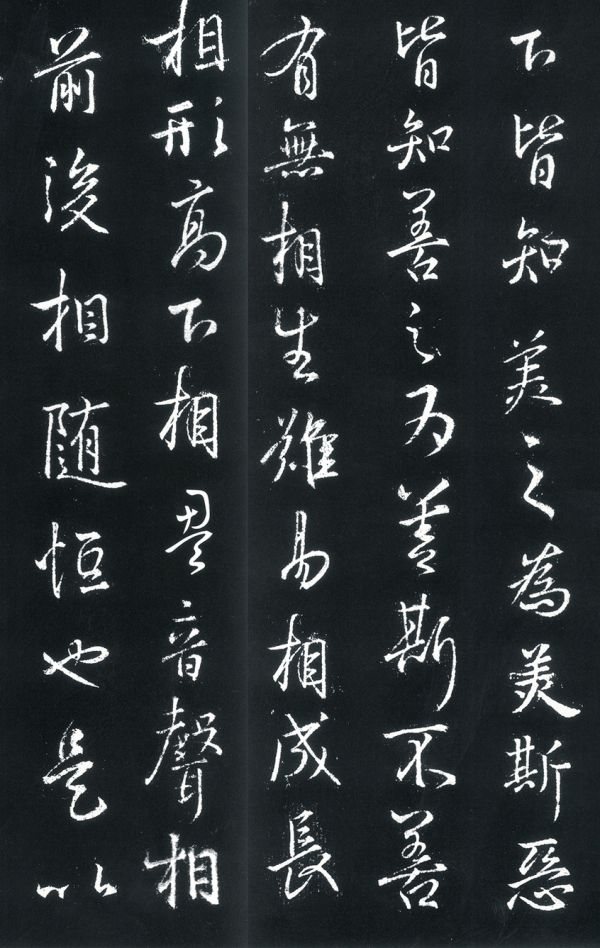 下皆知美之為美斯惡
皆知善之为善斯不善
有無相生難易相成長
相形高下相盈音聲相
前後相随恒也是以